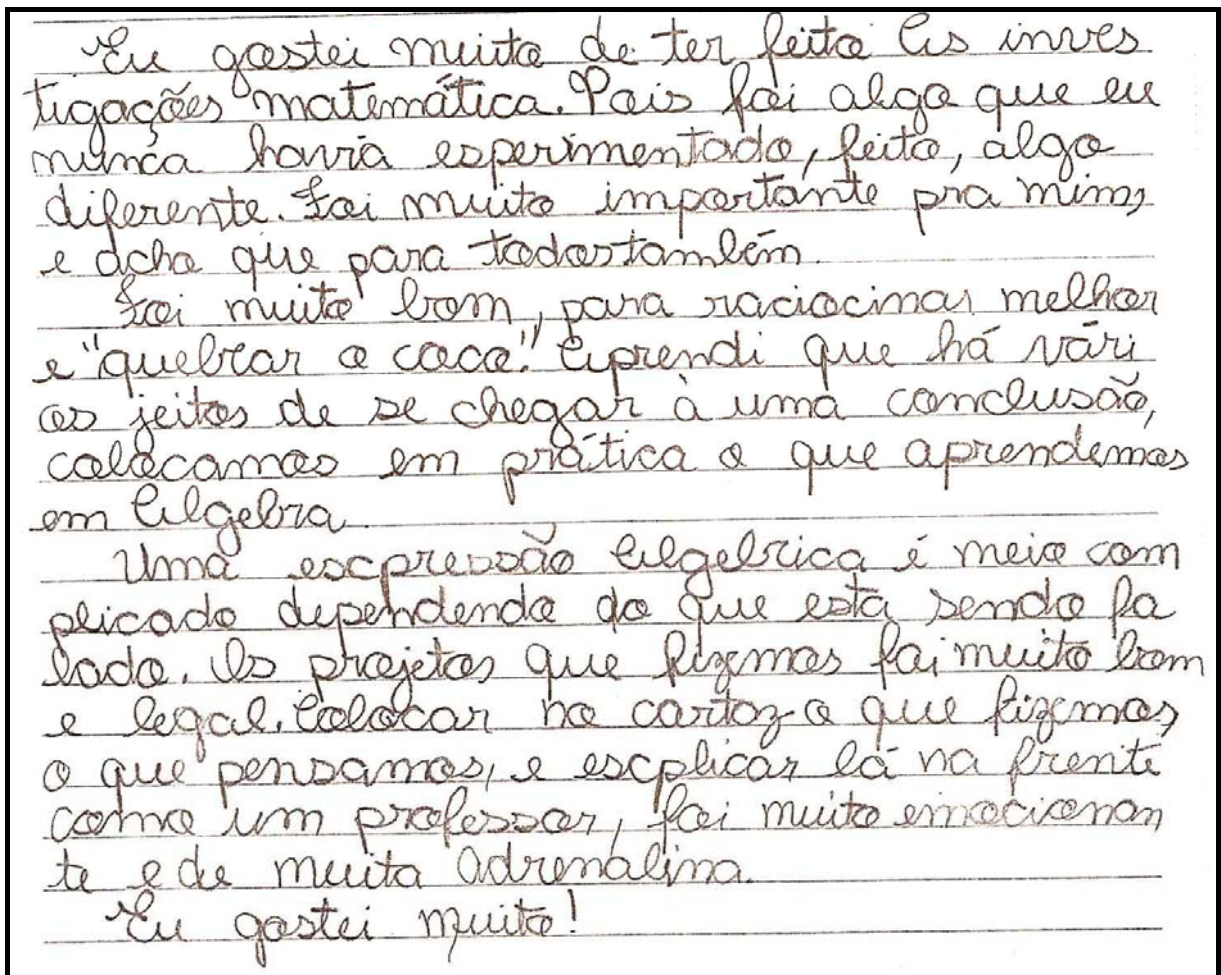 Eu gostei muito de ter feito As inves
tigações matemática. Pois foi algo que eu
nunca havia esperimentado, feito, algo
diferente. Foi muito importante pra mim,
e acho que para todos também.
Foi muito bom, para raciocinar melhor
e "quebrar a coca". Aprendi que há vári
os jeitos de se chegar à uma conclusão,
colocamos em prática o que aprendemos
em Algebra.
Uma escpressão Algebrica é meio com
plicado dependendo do que está sendo fa
lado. Os projetos que fizemos foi muito bom
e legal. Colocar no cartaz o que fizemos,
o que pensamos, e escplicar lá na frente
como um professor, foi muito emocionan
te e de muita adrenalina.
Eu gostei muito!